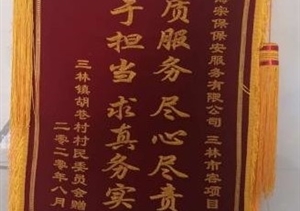 宗保保安服务有限公司 三林市容项目
质服务 尽心尽责
于担当 求真务实
三林镇胡巷村村民委员会赠
二零二零年八月